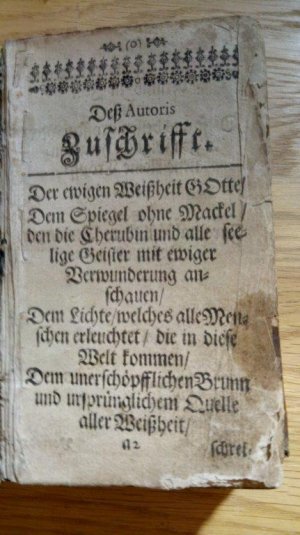 (o)
Deß Autoris
Zuschrifft.
Der ewigen Weißheit GOttes/
Dem Spiegel ohne Mackel/
den die Cherubin und alle see-
lige Geister mit ewiger
Verwunderung an-
schauen/
Dem Lichte/welches alle Men-
schen erleuchtet/ die in diese
Welt kommen/
Dem unerschöpfflichen Brunn
und ursprünglichem Quelle
aller Weißheit/
a2
schrei-